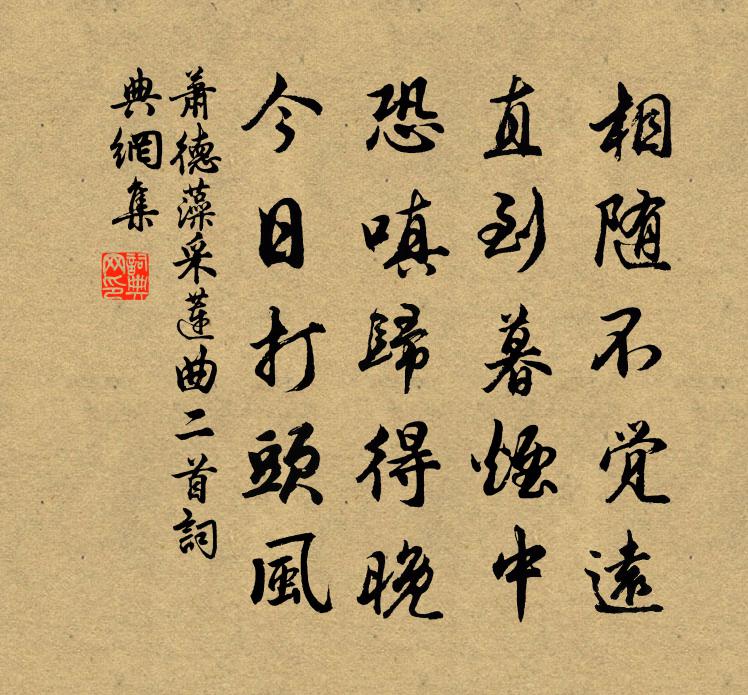 相随不觉遠
直到暮煙中
恐嗔歸得晚
今日打頭風
蕭德藻采蓮曲二首詞
典網集
詞典網印